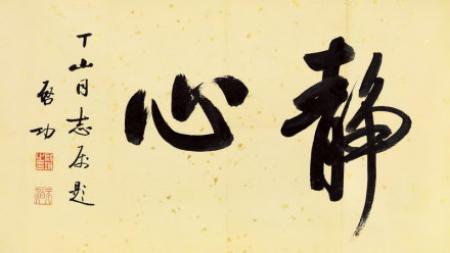 静心
丁山同志属题
启功